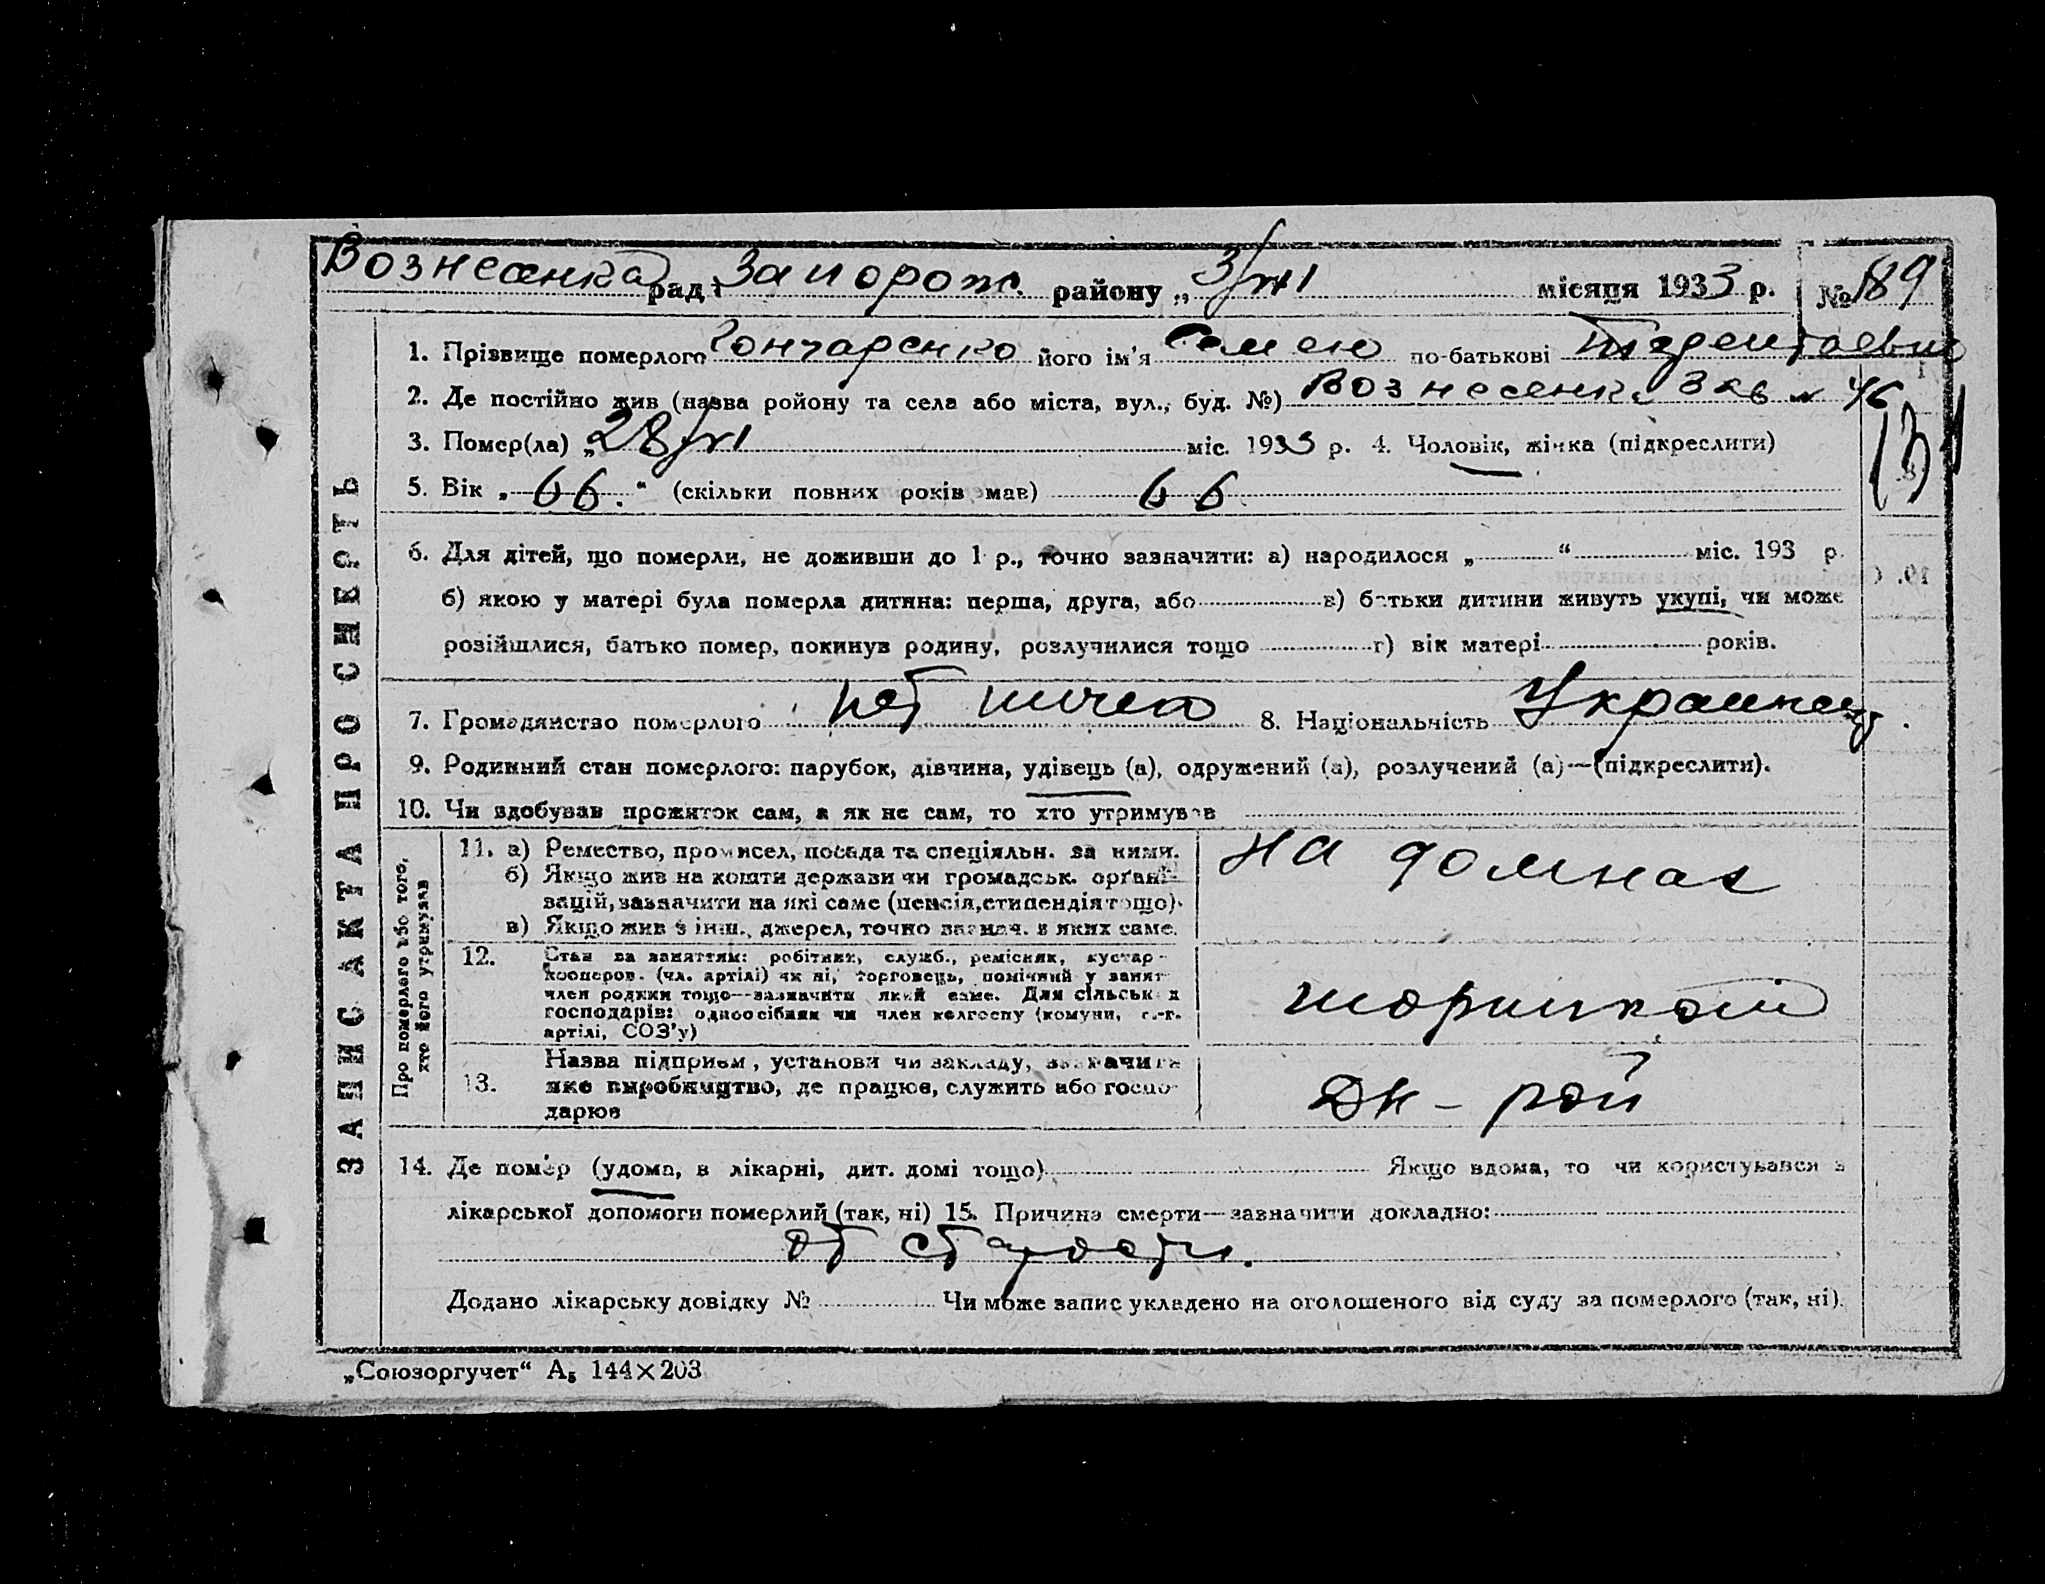 Вознесенка рад Запорож. району „3/VII місяця 1933 р. № 189
1. Прізвище померлого Гончаренко його ім'я Семен по-батькові Терентьевич
2. Де постійно жив (назва ройону та села або міста, вул., буд. №) Вознесенка 3 кв 46
3. Помер(ла) „28/VI міс. 1933 р. 4. Чоловік, жінка (підкреслити)
131
5. Вік „ 66. “ (скільки повних років мав) 66.
6. Для дітей, що померли, не доживши до 1 р., точно зазначити: а) народилося „ “ міс. 193 р.
б) якою у матері була померла дитина: перша, друга, або в) батьки дитини живуть укупі, чи може
розійшлися, батько помер, покинув родину, розлучилися тощо г) вік матері років.
7. Громадянство померлого нет 8. Національність Украинец.
9. Родинний стан померлого: парубок, дівчина, удівець (а), одружений (а), розлучений (а)—(підкреслити).
10. Чи здобував прожиток сам, а як не сам, то хто утримував
ЗАПИС АКТА ПРО СМЕРТЬ
Про померлого або того,
хто його утримував
11. а) Ремество, промисел, посада та спеціяльн. за ними.
б) Якщо жив на кошти держави чи громадськ. органі-
зацій, зазначити на які саме (пенсія, стипендія тощо).
в) Якщо жив з інш., джерел, точно зазнач. з яких саме.
на домнах
12. Стан за заняттям: робітник, служб., ремісник, кустар-
кооперов. (чл. артілі) чи ні, торговець, помічний у занят
член родини тощо—зазначити який саме. Для сільськ
господарів: одноосібник чи член колгоспу (комуни, с.-г.
артілі, СОЗ'у)
13. Назва підприєм, установи чи закладу, зазначити
яке виробництво, де працює, служить або госпо-
дарює
14. Де помер (удома, в лікарні, дит. домі тощо) Якщо вдома, то чи користувався з
лікарської допомоги померлий (так, ні) 15. Причина смерти—зазначити докладно:
от старости.
Додано лікарську довідку № Чи може запис укладено на оголошеного від суду за померлого (так, ні).
„Союзоргучет“ А₅ 144×203